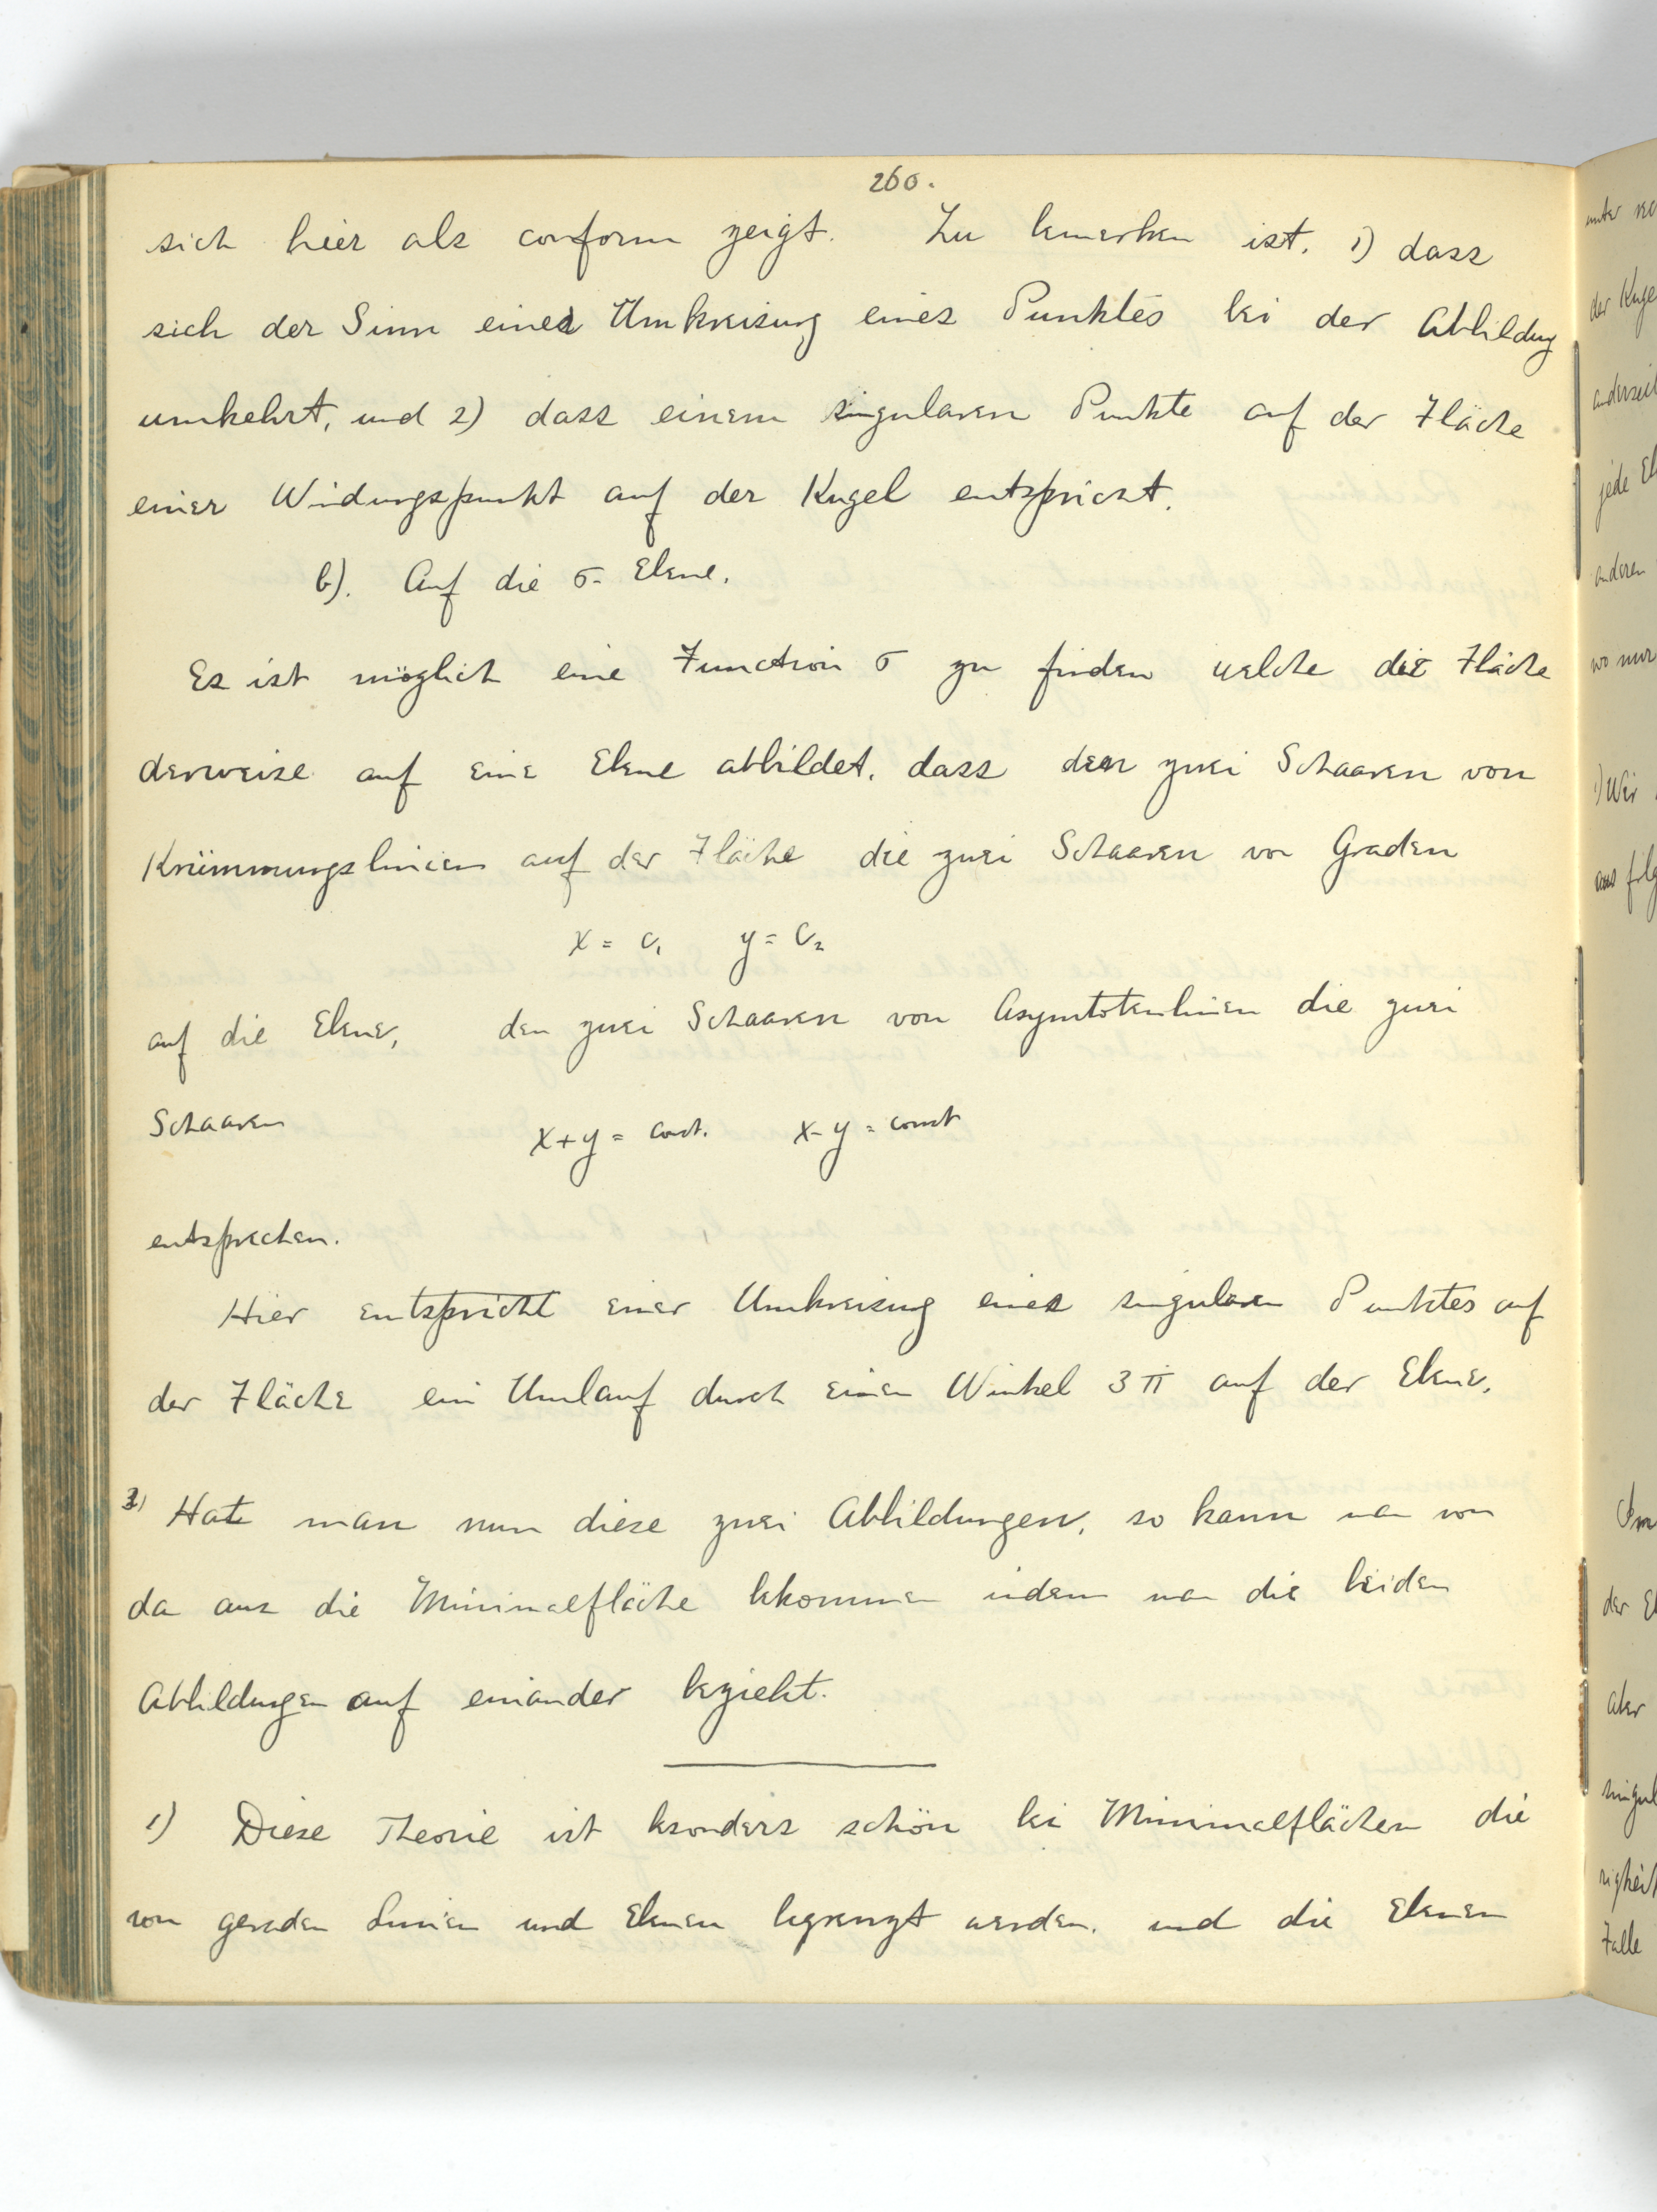 260.
sich hier als conform zeigt. Zu bemerken ist. 1) dass
sich der Sinn einer Umkreisung eines Punktes bei der Abbildung
umkehrt, und 2) dass einem singularen Punkte auf der Fläche
einer Windungspunkt auf der Kugel entspricht.
b). Auf die σ- Ebene.
Es ist möglich eine Function σ zu finden welche die Fläche
derweise auf eine Ebene abbildet, dass den zwei Schaaren von
Krümmungslinien auf der Fläche die zwei Schaaren von Graden
x = c₁ y = c₂
auf die Ebene, den zwei Schaaren von Asymtotenlinien die zwei
Schaaren x+y = const. x-y = const
entsprechen.
Hier entspricht einer Umkreisung eines singularen Punktes auf
der Fläche ein Umlauf durch einen Winkel 3π auf der Ebene.
3) Hat man nun diese zwei Abbildungen, so kann man von
da aus die Minimalfläche bekommen indem man die beiden
Abbildungen auf einander bezieht.
1) Diese Theorie ist besonders schön bei Minimalflächen die
von geraden Linien und Ebenen begrenzt werden. und die Ebenen
der Kuge
jede
anderen
wo nur
1) Wir
der
aber
Falle